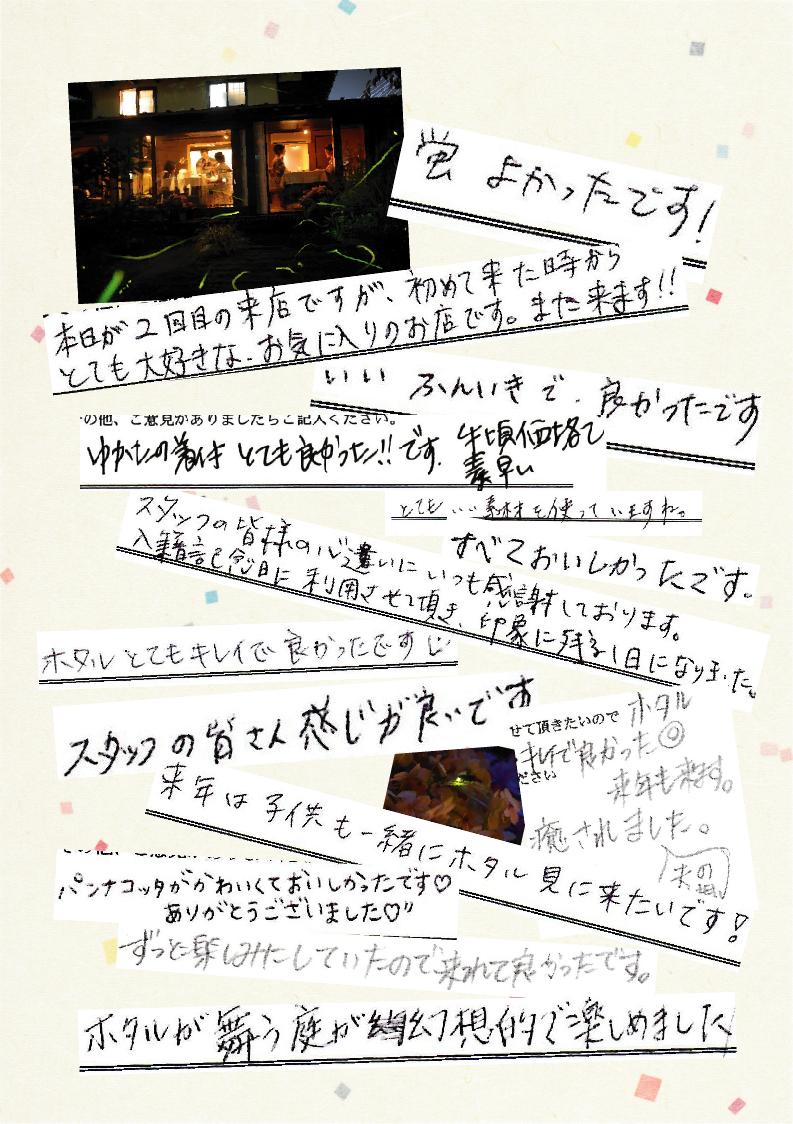 蛍 よかったです!
本日が2回目の来店ですが、初めて来た時から
とても大好きな、お気に入りのお店です。また来ます!!
いい ふんいきで、良かったです
の他、ご意見がありましたらご記入ください。
ゆかたの着付 とても良かった!!です。
手頃価格で
素早い
とてもいい素材を使っていますね。
すべておいしかったです。
スタッフの皆様の心遣いにいつも感謝しております。
入籍記念日に利用させて頂き、印象に残る1日になりました。
ホタルとてもキレイで良かったです
スタッフの皆さん感じが良いです
せて頂きたいので
ださい
ホタル
キレイで良かった◎
来年も来ます。
癒されました。
来年は子供も一緒にホタル見に来たいです!
パンナコッタがかわいくておいしかったです♡
ありがとうございました♡"
ずっと楽しみにしていたので来れて良かったです。
ホタルが舞う庭が幻想的で楽しめました